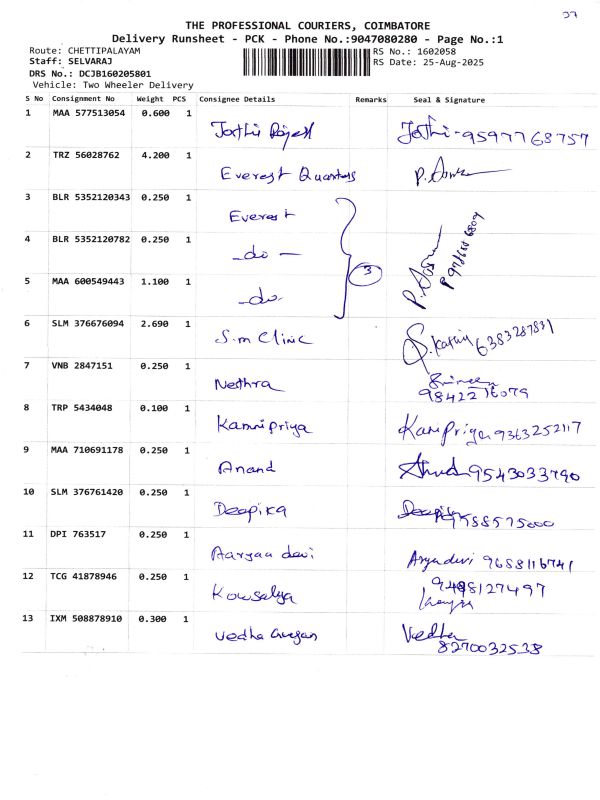 27
THE PROFESSIONAL COURIERS, COIMBATORE
Delivery Runsheet - PCK - Phone No.:9047080280 - Page No.:1
Route: CHETTIPALAYAM RS No.: 1602058
Staff: SELVARAJ RS Date: 25-Aug-2025
DRS No.: DCJB160205801
Vehicle: Two Wheeler Delivery
S No Consignment No Weight PCS Consignee Details Remarks Seal & Signature
1 MAA 577513054 0.600 1 Jothi Rajesh Jothi - 9597768757
2 TRZ 56028762 4.200 1 Everest Quarters
3 BLR 5352120343 0.250 1 Everest
4 BLR 5352120782 0.250 1 -do- 3
5 MAA 600549443 1.100 1 -do.
6 SLM 376676094 2.690 1 S.m Clinic 6383287831
7 VNB 2847151 0.250 1 Nethra
9842216079
8 TRP 5434048 0.100 1 Kannipriya 9363252117
9 MAA 710691178 0.250 1 Anand 9543033790
10 SLM 376761420 0.250 1 Deepika Deepika
11 DPI 763517 0.250 1 Aaryaa devi Aryadevi 9688116741
12 TCG 41878946 0.250 1 Kowsalya 9488127497
13 IXM 508878910 0.300 1 Vedha Vedha
8270032538